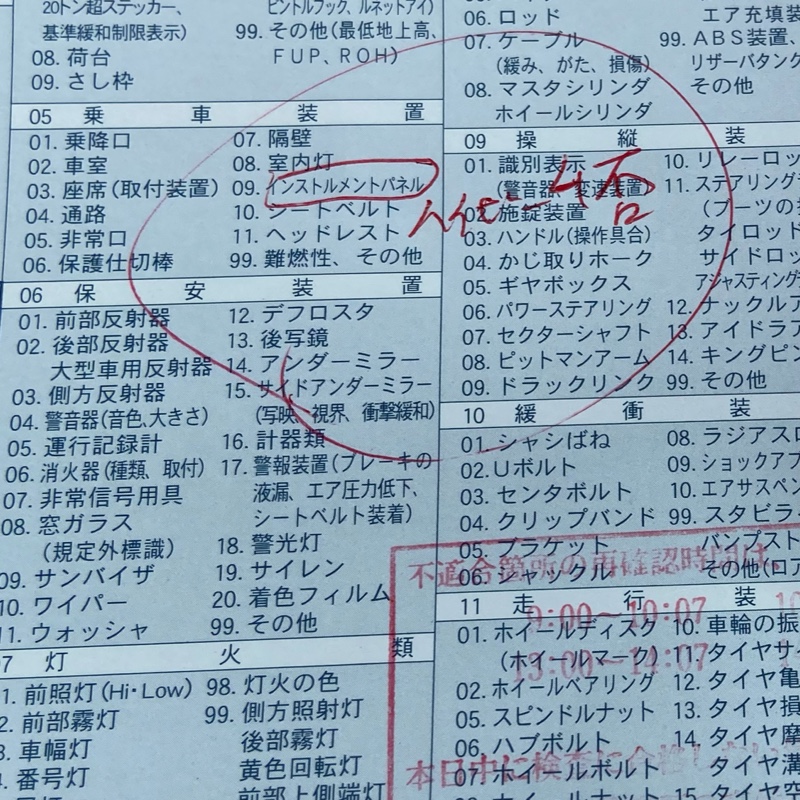 20トン超ステッカー、
基準緩和制限表示)
08. 荷台
09. さし枠
ピントルフック、ルネットアイ)
99. その他(最低地上高、
FUP、ROH)
05 乗車装置
01. 乗降口
02. 車室
03. 座席(取付装置)
04. 通路
05. 非常口
06. 保護仕切棒
07. 隔壁
08. 室内灯
09. インストルメントパネル
10. シートベルト
11. ヘッドレスト
99. 難燃性、その他
06 保安装置
01. 前部反射器
02. 後部反射器
大型車用反射器
03. 側方反射器
04. 警音器(音色、大きさ)
05. 運行記録計
06. 消火器(種類、取付)
07. 非常信号用具
08. 窓ガラス
(規定外標識)
09. サンバイザ
10. ワイパー
11. ウォッシャ
12. デフロスタ
13. 後写鏡
14. アンダーミラー
15. サイドアンダーミラー
(写映、視界、衝撃緩和)
16. 計器類
17. 警報装置(ブレーキの
液漏、エア圧力低下、
シートベルト装着)
18. 警光灯
19. サイレン
20. 着色フィルム
99. その他
7 灯火類
1. 前照灯(Hi・Low)
2. 前部霧灯
3. 車幅灯
番号灯
98. 灯火の色
99. 側方照射灯
後部霧灯
黄色回転灯
前部上側端灯
06. ロッド
07. ケーブル
(緩み、がた、損傷)
08. マスタシリンダ
ホイールシリンダ
エア充填装
99. ABS装置、
リザーバタンク
その他
09 操縦装
01. 識別表示
(警音器、変速装置)
02. 施錠装置
03. ハンドル(操作具合)
04. かじ取りホーク
05. ギヤボックス
06. パワーステアリング
07. セクターシャフト
08. ピットマンアーム
09. ドラックリンク
10. リレーロッ
11. ステアリング
(ブーツの
タイロッド
サイドロッ
アジャスティング
12. ナックルア
13. アイドラア
14. キングピン
99. その他
10 緩衝装
01. シャシばね
02. Uボルト
03. センタボルト
04. クリップバンド
05. ブラケット
06. シャックル
08. ラジアスロ
09. ショックアブ
10. エアサスペン
99. スタビラ
バンプスト
その他(ロア
不適合箇所の再確認時間は、
9:00～10:07
13:00～14:07
本日中に検査に合格し
11 走行装
01. ホイールディスク
(ホイールマーク)
02. ホイールベアリング
05. スピンドルナット
06. ハブボルト
07. ホイールボルト
10. 車輪の振
11. タイヤサイ
12. タイヤ亀
13. タイヤ損
14. タイヤ摩
タイヤ溝
15. タイヤ空